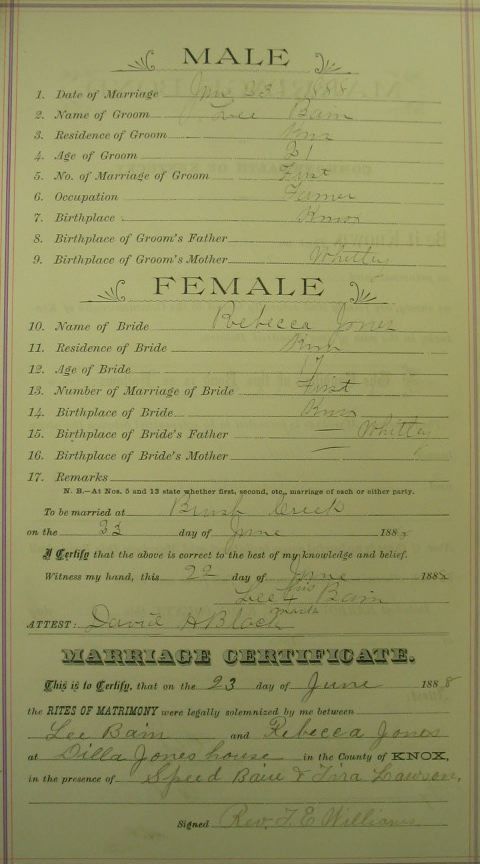 MALE
1. Date of Marriage June 23 1888
2. Name of Groom Lee Bain
3. Residence of Groom Knox
4. Age of Groom 21
5. No. of Marriage of Groom First
6. Occupation Farmer
7. Birthplace Knox
8. Birthplace of Groom's Father
9. Birthplace of Groom's Mother Whitley
FEMALE
10. Name of Bride Rebecca Jones
11. Residence of Bride Knox
12. Age of Bride 17
13. Number of Marriage of Bride First
14. Birthplace of Bride Knox
15. Birthplace of Bride's Father — Whitley
16. Birthplace of Bride's Mother —
17. Remarks
N. B.—At Nos. 5 and 13 state whether first, second, etc., marriage of each or either party.
To be married at Brush Creek
on the 23 day of June 188
I Certify that the above is correct to the best of my knowledge and belief.
Witness my hand, this 22 day of June 188
Lee his Bain
mark
ATTEST: David H Black
MARRIAGE CERTIFICATE.
This is to Certify, that on the 23 day of June 1888
the RITES OF MATRIMONY were legally solemnized by me between
Lee Bain and Rebecca Jones
at Dilla Jones house in the County of KNOX,
in the presence of Speed Bain & Lawson,
Signed Rev. T. E. Williams